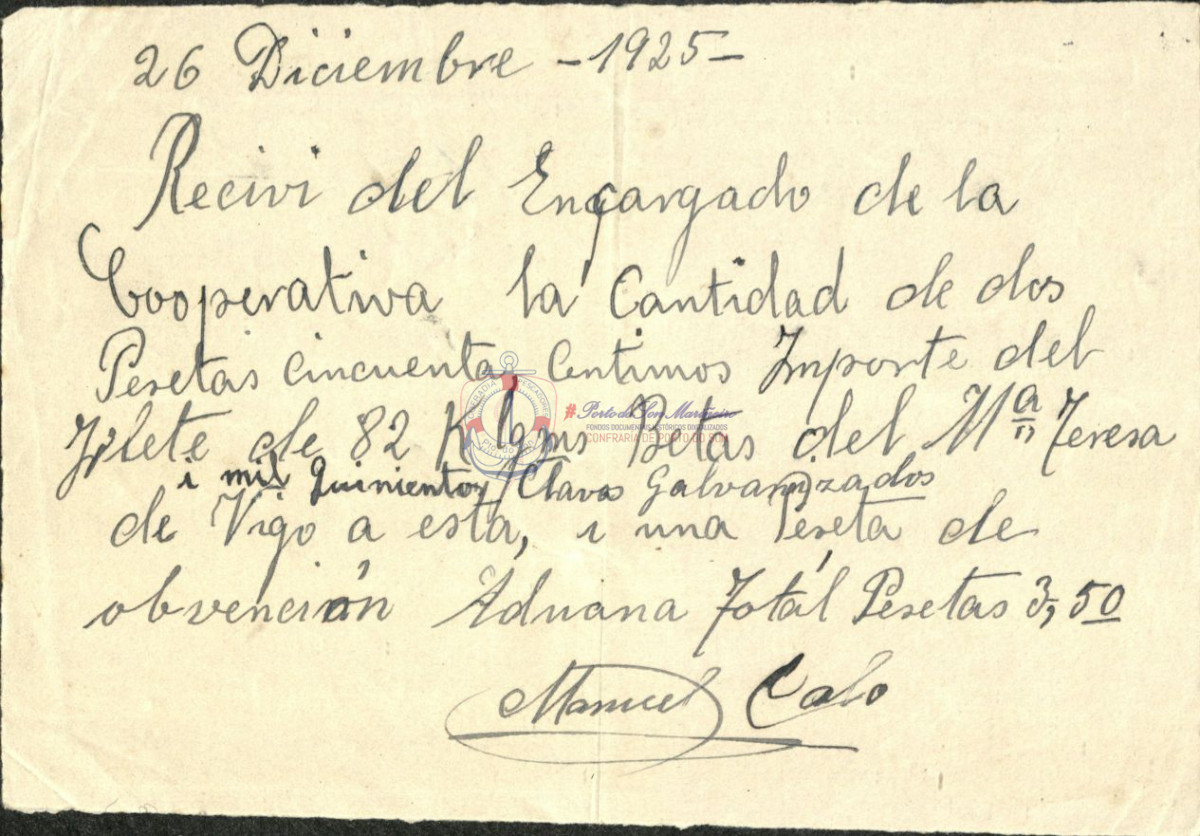 26 Diciembre - 1925 -
Recivi del Encargado de la
Cooperativa la Cantidad de dos
Pesetas cincuenta Centimos Importe del
flete de 82 Klgms Betas del Mª Teresa
i mil Quinientos Clavos Galvanizados
de Vigo a esta, i una Peseta de
obvención Aduana Totál Pesetas 3,50
Manuel Calo
#Porto do Son Mariñeiro
FONDOS DOCUMENTAIS HISTÓRICOS DIGITALIZADOS
CONFRARIA DE PORTO DO SON